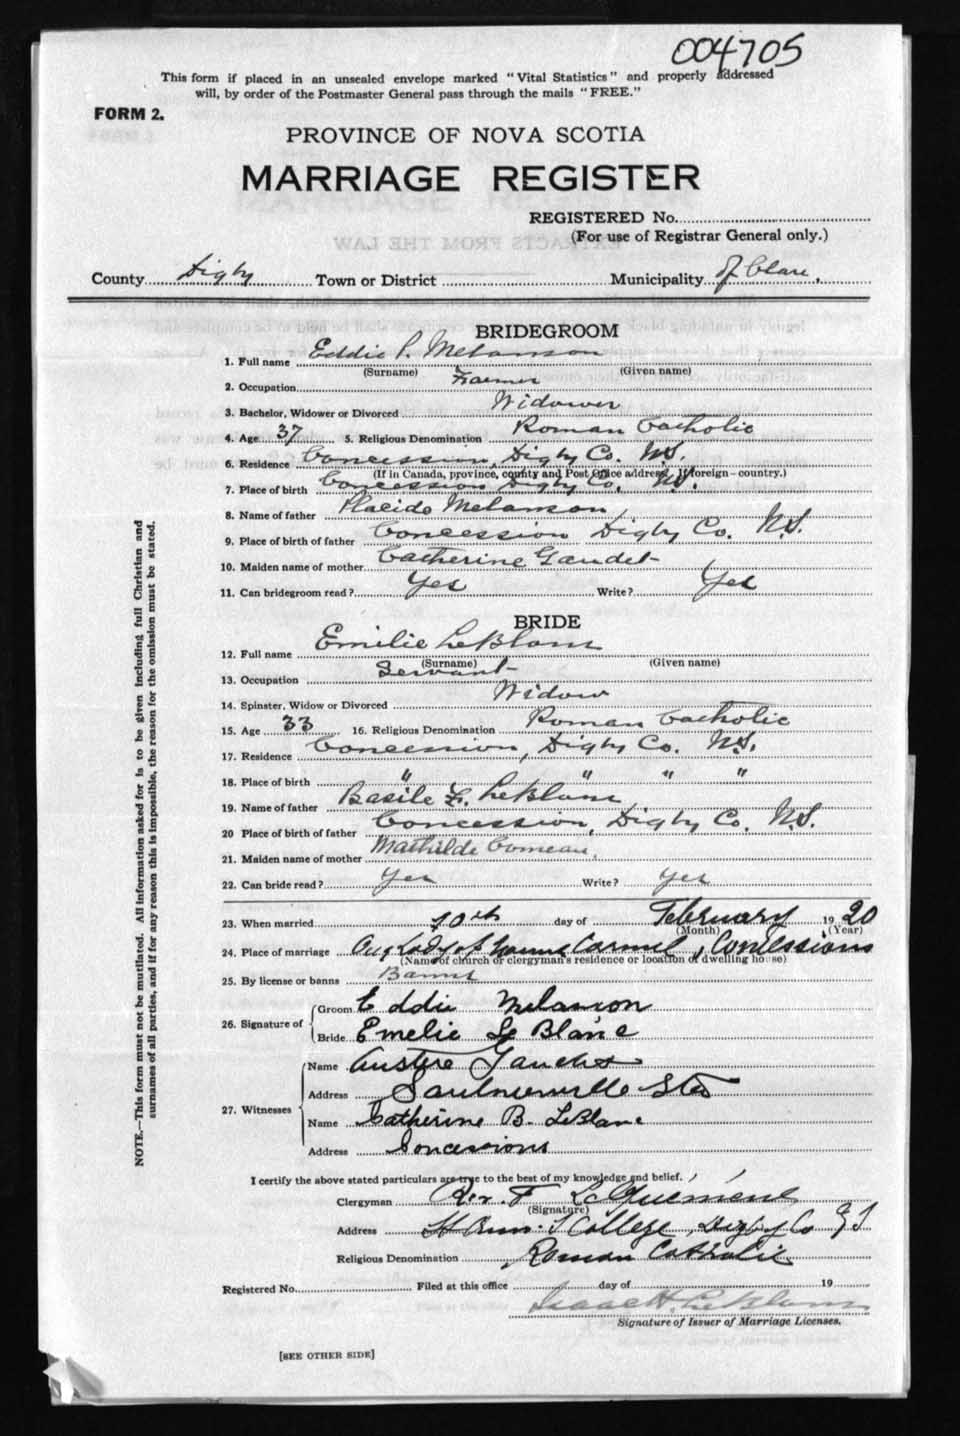 004705
This form if placed in an unsealed envelope marked "Vital Statistics" and properly addressed
will, by order of the Postmaster General pass through the mails "FREE."
FORM 2.
PROVINCE OF NOVA SCOTIA
MARRIAGE REGISTER
REGISTERED No.
(For use of Registrar General only.)
EXTRACTS FROM THE LAW
County Digby Town or District Municipality of Clare.
BRIDEGROOM
1. Full name Eddie P. Melanson
(Surname) (Given name)
2. Occupation Farmer
3. Bachelor, Widower or Divorced Widower
4. Age 37 5. Religious Denomination Roman Catholic
6. Residence Concession, Digby Co. N.S.
(If in Canada, province, county and Post Office address, if foreign—country.)
7. Place of birth Concession Digby Co. N.S.
8. Name of father Placide Melanson
9. Place of birth of father Concession Digby Co. N.S.
10. Maiden name of mother Catherine Gaudet
11. Can bridegroom read? Yes Write? Yes
BRIDE
12. Full name Emilie LeBlanc
(Surname) (Given name)
13. Occupation Servant
14. Spinster, Widow or Divorced Widow
15. Age 33 16. Religious Denomination Roman Catholic
17. Residence Concession, Digby Co. N.S.
18. Place of birth " " " "
19. Name of father Basile LeBlanc
20 Place of birth of father Concession, Digby Co. N.S.
21. Maiden name of mother Mathilde Comeau.
22. Can bride read? Yes Write? Yes
23. When married 10th day of February 1920
(Month) (Year)
24. Place of marriage Our Lady of Carmel, Concessions
(Name of church or clergyman's residence or location of dwelling house)
25. By license or banns Banns
26. Signature of
Groom Eddie Melanson
Bride Emelie Le Blanc
27. Witnesses
Name
Address Saulnierville Sta
Name Catherine B. LeBlanc
Address Concessions
I certify the above stated particulars are true to the best of my knowledge and belief.
Clergyman Rev. F
(Signature)
Address College, Digby Co
Religious Denomination Roman Catholic
Registered No. Filed at this office day of 19
Isaac H. LeBlanc
Signature of Issuer of Marriage Licenses.
[SEE OTHER SIDE]
NOTE.—This form must not be mutilated. All information asked for is to be given including full Christian and
surnames of all parties, and if for any reason this is impossible, the reason for the omission must be stated.